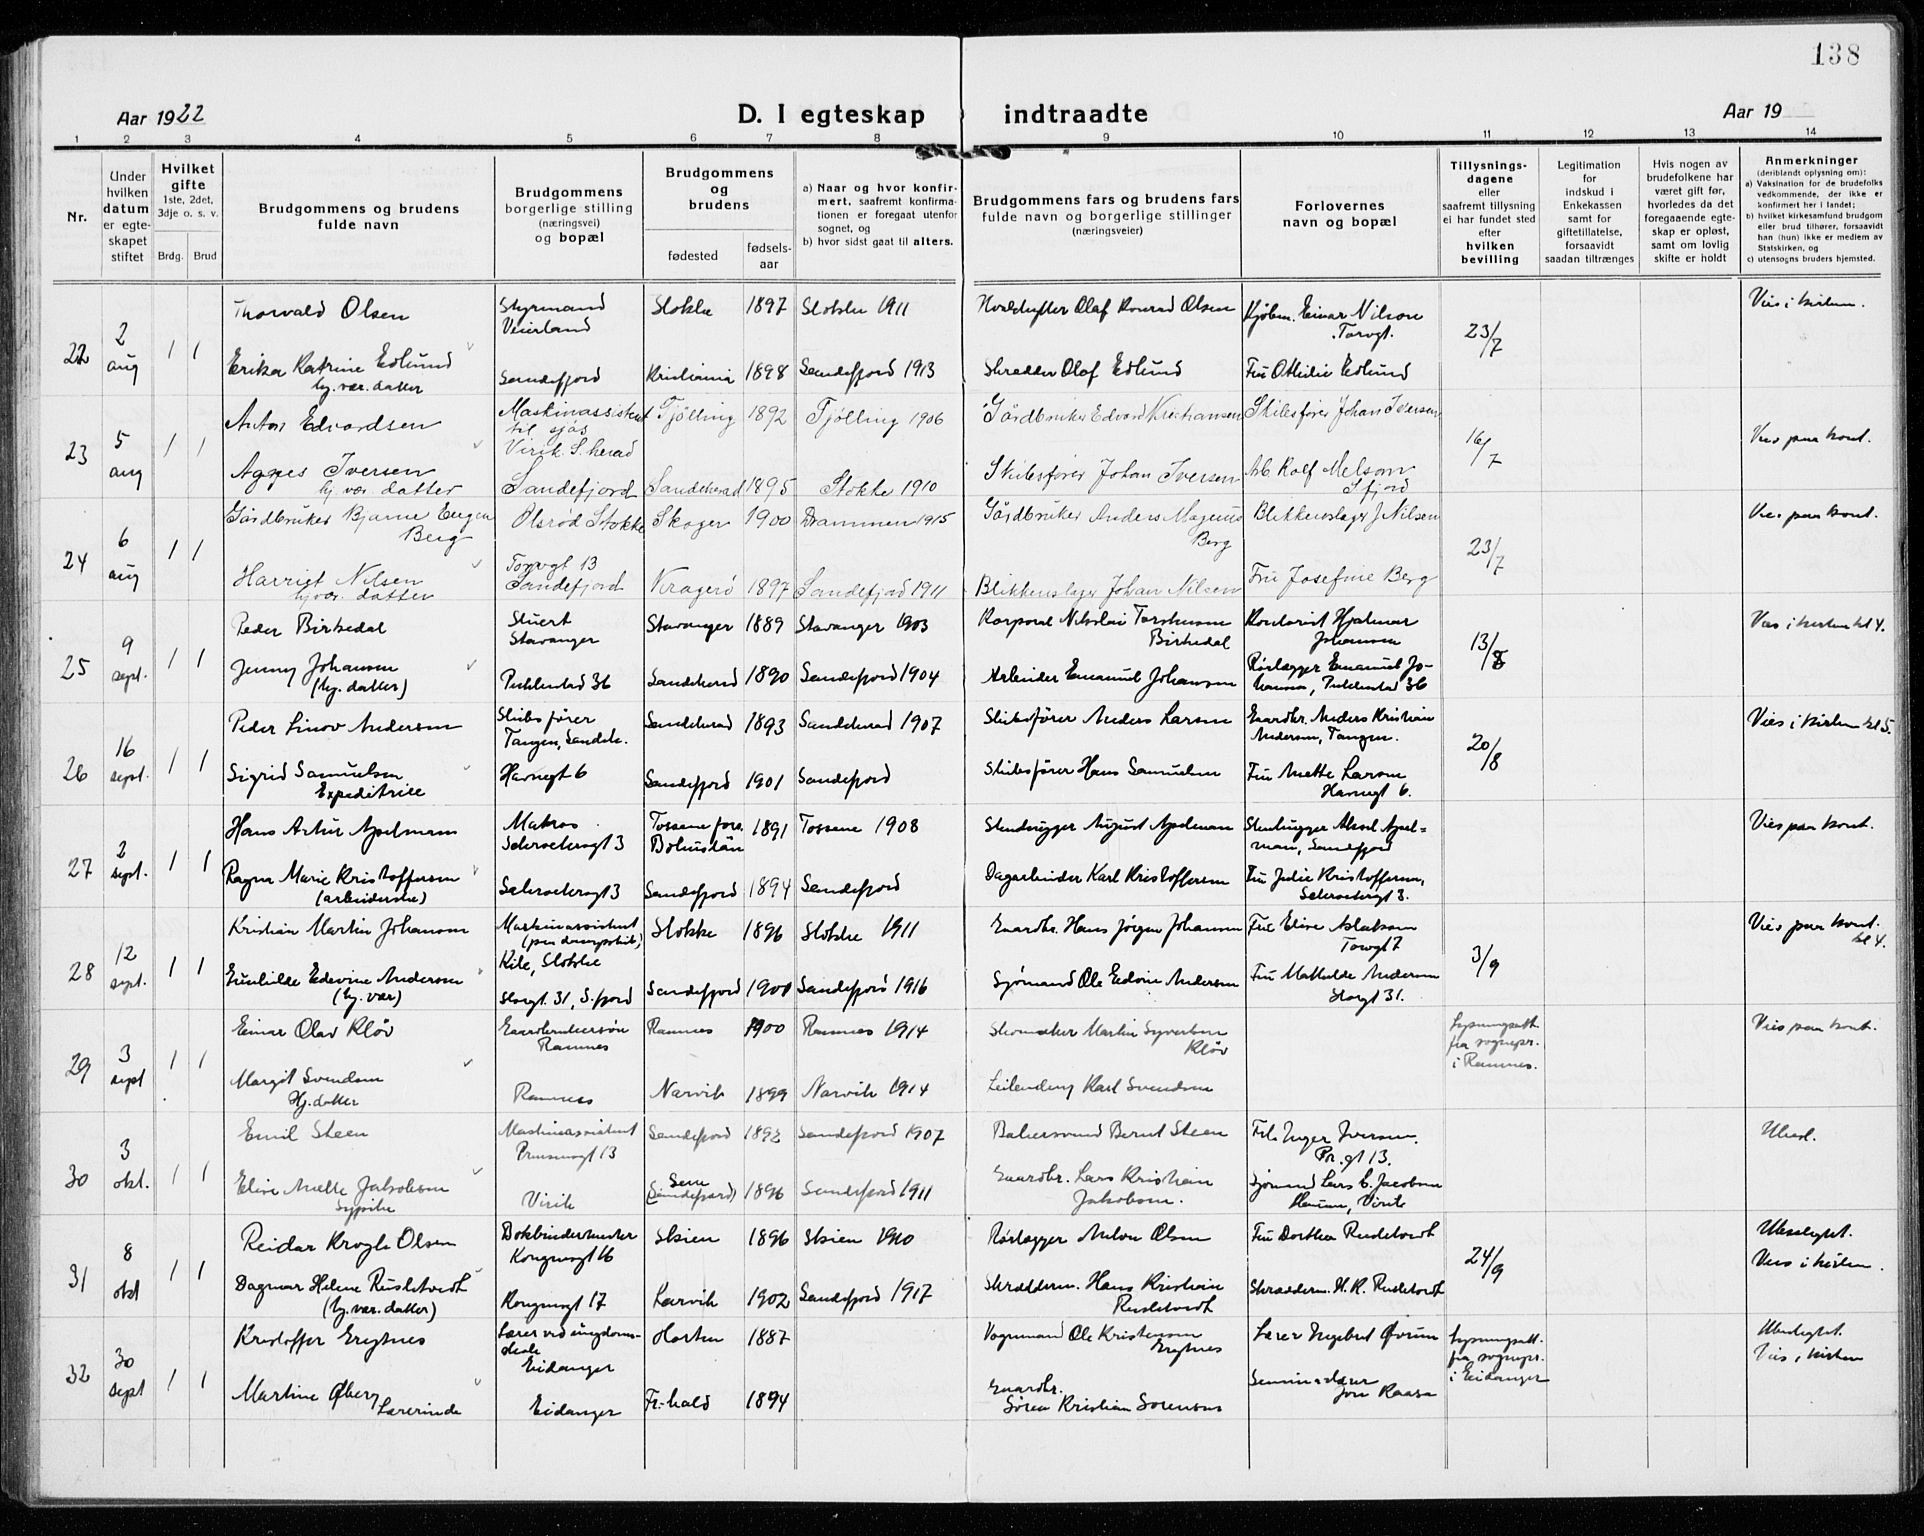 138
Aar 1922
D. I egteskap indtraadte
Aar 19
1 2 3 4 5 6 7 8 9 10 11 12 13 14
Nr.
Under hvilken datum er egteskapet stiftet
Hvilket gifte
1ste, 2det, 3dje o. s. v.
Brdg. Brud
Brudgommens og brudens
fulde navn
Brudgommens
borgerlige stilling
(næringsvei)
og bopæl
Brudgommens
og
brudens
fødested
fødsels-
aar
a) Naar og hvor konfir-
mert, saafremt konfirma-
tionen er foregaat utenfor
sognet, og
b) hvor sidst gaat til alters.
Brudgommens fars og brudens fars
fulde navn og borgerlige stillinger
(næringsveier)
Forlovernes
navn og bopæl
Tillysnings-
dagene
eller
saafremt tillysning
ei har fundet sted
efter
hvilken
bevilling
Legitimation
for
indskud i
Enkekassen
samt for
giftetillatelse,
forsaavidt
saadan tiltrænges
Hvis nogen av
brudefolkene har
været gift før,
hvorledes da det
foregaaende egte-
skap er opløst,
samt om lovlig
skifte er holdt
Anmerkninger
(deriblandt oplysning om):
a) Vaksination for de brudefolks
vedkommende, der ikke er
konfirmert her i landet;
b) hvilket kirkesamfund brudgom
eller brud tilhører, forsaavidt
han (hun) ikke er medlem av
Statskirken, og
c) utensogns bruders hjemsted.
22 2 aug 1 1
Thorvald Olsen Styrmand Veierland Stokke 1897 Stokke 1911 Olaf Konrad Olsen Kjøbm. Einar Nilson Torvgt. 23/7 Vies i kirken.
Erika Katrine Edlund hj. vær. datter Sandefjord Kristiania 1898 Sandefjord 1913 Skrædder Olaf Edlund Fru Ottilie Edlund
23 5 aug 1 1
Anton Edvardsen Maskinassistent til sjøs Virik S. herad Tjølling 1892 Tjølling 1906 Gårdbruker Edvard Kristiansen Skibsfører Johan Iversen 16/7 Vies paa kont.
Agnes Iversen hj. vær. datter Sandefjord Sandeherad 1895 Stokke 1910 Skibsfører Johan Iversen Arb. Rolf Melsom S.fjord
24 6 aug 1 1
Gårdbruker Bjarne Eugen Berg Olsrød Stokke Skoger 1900 Drammen 1915 Gårdbruker Anders Magnus Berg Blikkenslager J Nilsen 23/7 Vies paa kont.
Harriet Nilsen hj.vær. datter Torvgt 13 Sandefjord Kragerø 1897 Sandefjord 1911 Blikkenslager Johan Nilsen Fru Josefine Berg
25 9 sept. 1 1
Peder Birkedal Stuert Stavanger Stavanger 1889 Stavanger 1903 Korporal Nikolai Birkedal Kontorist Hjalmar Johansen 13/8 Vies i kirken kl 4.
Jenny Johansen (hj. datter) Pukkestad 36 Sandeherad 1890 Sandefjord 1904 Arbeider Emanuel Johansen Rørlægger Emanuel Johansen, Pukkestad 36
26 16 sept. 1 1
Peder Linov Andersen Skibsfører Tangen, Sandeh. Sandeherad 1893 Sandeherad 1907 Skibsfører Anders Larsen Gaardbr. Anders Kristian Andersen, Tangen. 20/8 Vies i kirken kl 5.
Sigrid Samuelsen Expeditrice Havnegt 6 Sandefjord 1901 Sandefjord Skibsfører Hans Samuelsen Fru Mette Larsen Havnegt 6.
27 2 sept. 1 1
Hans Artur Apelman Matros Tossene fors. Bohuslän 1891 Tossene 1908 Stenhugger August Apelman Stenhugger Aksel Apel=man, Sandefjord Vies paa kont.
Ragna Marie Kristoffersen (arbeiderske) Sandefjord 1894 Sandefjord Dagarbeider Karl Kristoffersen Fru Julie Kristoffersen,
28 12 sept. 1 1
Kristian Martin Johansen Maskinassistent (paa dampskib) Kile, Stokke Stokke 1896 Stokke 1911 Gaardbr. Hans Jørgen Johansen Fru Elise Aslaksen Torvgt 7 3/9 Vies paa kont. kl 4.
Gunhilde Edevine Andersen (hj. vær) Storgt. 31, S.fjord Sandefjord 1901 Sandefjord 1916 Sjømand Ole Edvin Andersen Fru Mathilde Andersen Storgt 31.
29 3 sept 1 1
Einar Olav Kløv Gaardbrukersøn Ramnes Ramnes 1900 Ramnes 1914 Skomaker Martin Syvertsen Kløv Lysningsatt. fra sognepr. i Ramnes. Vies paa kont.
Margit Svendsen Hj. datter Ramnes Narvik 1899 Narvik 1914 Karl Svendsen
30 3 okt. 1 1
Emil Steen Maskinassistent Prinsensgt 13 Sandefjord 1892 Sandefjord 1907 Bakersvend Bernt Steen Frk Inger Iversen. Pr.gt 13. Ubesl.
Elise Mette Jakobsen Sypike Virik (Sandefjord) 1896 Sandefjord 1911 Gaardbr. Lars Kristian Jakobsen. Sjømand Lars C. Jacobsen Virik
31 8 okt 1 1
Reidar Krogh Olsen Bokbindermester Kongensgt 16 Skien 1896 Skien 1910 Rørlægger Anton Olsen Fru Dorthea Rudstvedt 24/9 Ubeslegtet. Vies i kirken.
Dagmar Helene Rudstvedt (hj. vær. datter) Kongensgt 17 Larvik 1902 Sandefjord 1917 Skræderm. Hans Kristian Rudstvedt Skræderm. H. K. Rudstvedt
32 30 sept 1 1
Kristoffer Ergtnes Lærer ved ungdomsskole Eidanger Horten 1887 Vognmand Ole Kristensen Ergtnes Lærer Ingebret Øvrum Lysningsatt. fra sognepr. i Eidanger Ubeslegtet. Vies i kirken
Martine Øberg Lærerinde Eidanger Fr.hald 1894 Gaardbr. Søren Kristian Sørensen Jon Raasa